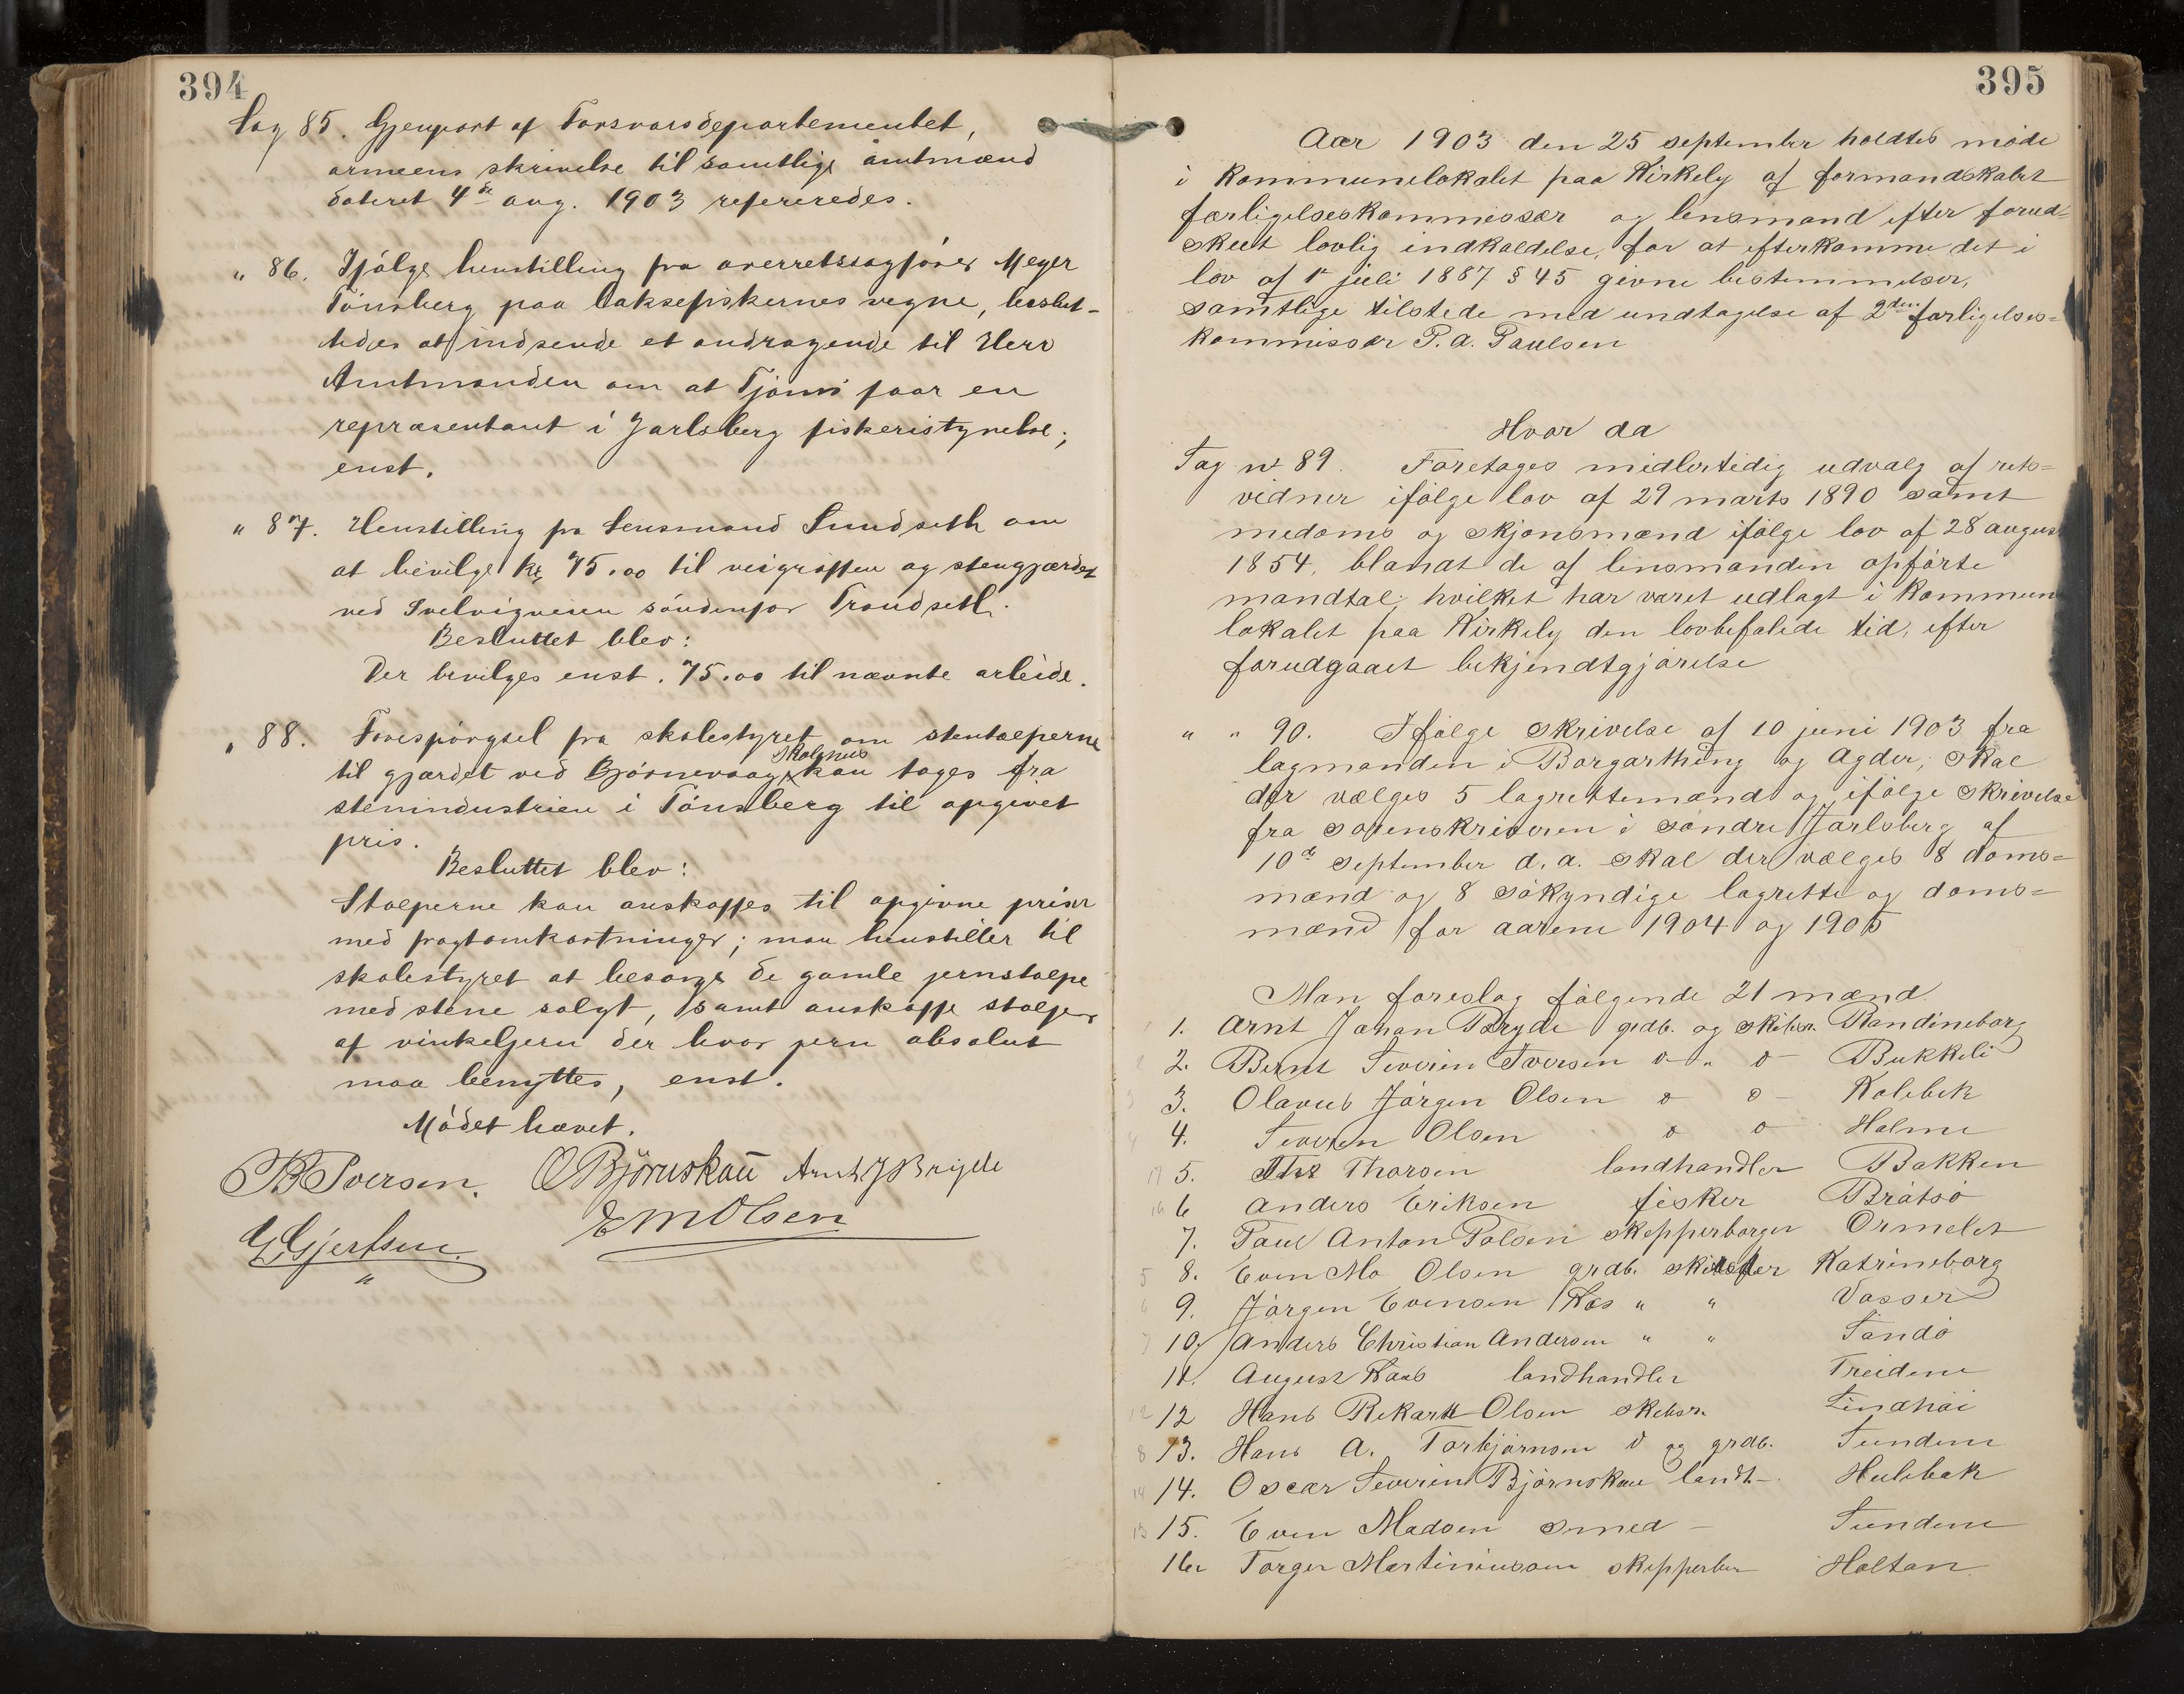 394
Sag 85. Gjenpart af Forsvarsdepartementet,
armeens skrivelse til samtlige amtmænd
dateret 4de aug. 1903 refereredes.
" 86. Ifølge henstilling fra overretssagfører Meyer
Tönsberg paa laksefiskernes vegne, beslut-
tedes at indsende et andragende til Herr
Amtmanden om at Tjømø faar en
repræsentant i Jarlsberg fiskeristyrelse;
enst.
" 87. Henstilling fra Lensmand Sundseth om
at bevilge kr 75.00 til veigröften og stengjærdet
ved Svelvigveien søndenfor Trondseth.
Besluttet blev:
Der bevilges enst. 75.00 til nævnte arbeide.
" 88. Forespørgsel fra skolestyret om stenstolperne
til gjærdet ved Bjørnevaag skolehus kan tages fra
stenindustrien i Tönsberg til opgivet
pris.
Besluttet blev:
Stolperne kan anskaffes til opgivne priser
med fragtomkostninger; man henstiller til
skolestyret at besørge de gamle jernstolpe
med stene solgt, samt anskaffe stolper
af vinkeljern der hvor jern absolut
maa benyttes, enst.
Mödet hævet.
B Iversen. O Björnskau Arnt J Bryde
G Gjertsen. E M Olsen
395
Aar 1903 den 25 september holdtes möde
i Kommunelokalet paa Kirkely af formandskabet
forligelseskommissær og lensmand efter forud-
skeet lovlig indkaldelse, for at efterkomme det i
lov af 1ste juli 1887 § 45 givne bestemmelser,
samtlige tilstede med undtagelse af 2den forligelses-
kommissær P. A. Paulsen
Hvor da
Sag nr 89. Foretages midlertidig udvalg af rets-
vidner ifølge lov af 29 marts 1890 samt
medoms og skjønsmænd ifølge lov af 28 august
1854, blandt de af lensmanden opførte
mandtal, hvilket har været udlagt i Kommune
lokalet paa Kirkely den lovbefalede tid, efter
forudgaaet bekjendtgjørelse
" " 90. Ifølge skrivelse af 10 juni 1903 fra
lagmanden i Borgarthing og Agder, skal
der vælges 5 lagrettemænd og ifølge skrivelse
fra sorenskriveren i søndre Jarlsberg af
10de september d.a. skal der vælges 8 doms-
mænd og 8 søkyndige lagrette og doms-
mænd for aarene 1904 og 1905
Man foreslog følgende 21 mænd.
1. Arnt Johan Bryde grdb. og skibsr. Randineborg
2. Bernt Severin Iversen d " d Bukkeli
3. Olavus Jørgen Olsen d d Kolebek
4. Severin Olsen d d Holme
5. Thorsen landhandler Bakken
6 Anders Eriksen fisker Bråtsø
7. Paul Anton Polsen skipperborger Ormelet
8. Even Ma Olsen grdb. Katrineborg
9. Jørgen Evensen Kaas " " Vasser
10. Anders Christian Andersen " " Sandø
11. August Kaas landhandler Treidene
12 Hans Rikart Olsen skibsr. Lindhøi
13. Hans A. Torbjørnsen d og grdb. Sundene
14. Oscar Severin Bjørnskau landh. Hulebak
15. Even Madsen smed Sundene
16. Torger Martiniussen skipperbor Holtan